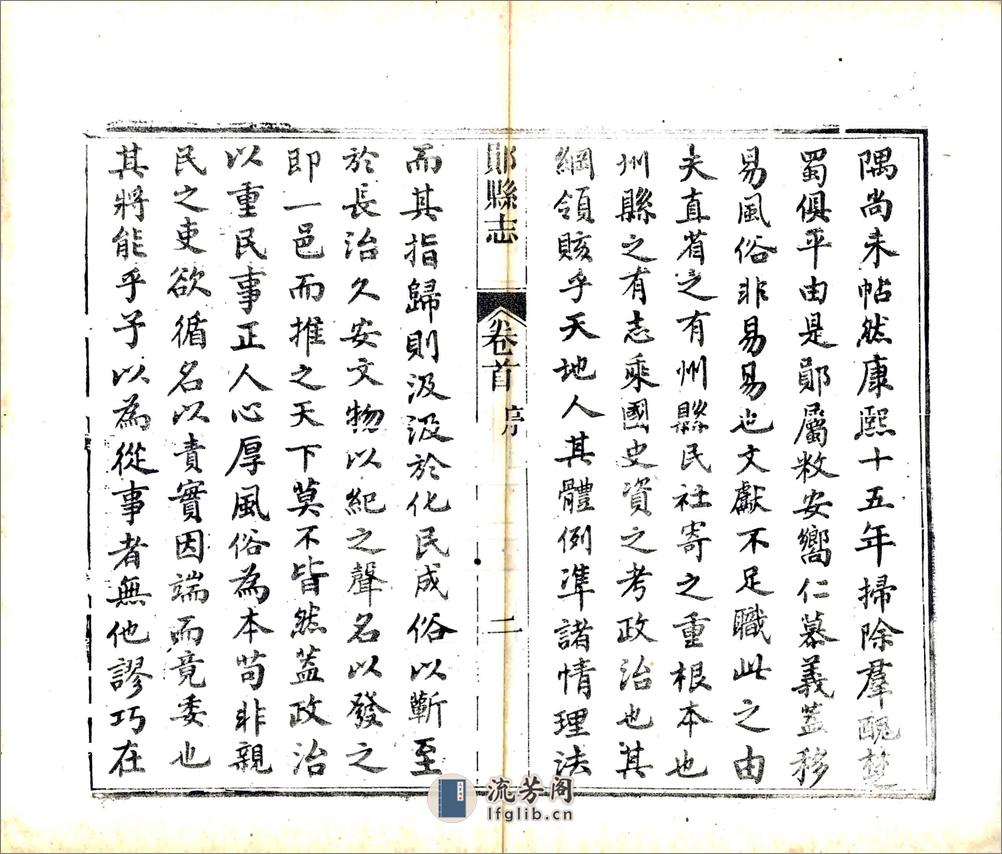 隅尚未帖然康熙十五年掃除羣醜楚
蜀俱平由是鄖屬敉安嚮仁慕義蓋移
易風俗非易易也文獻不足職此之由
夫直省之有州縣民社寄之重根本也
州縣之有志乘國史資之考政治也其
綱領賅乎天地人其體例準諸情理法
鄖縣志
卷首
序
二
而其指歸則汲汲於化民成俗以蘄至
於長治久安文物以紀之聲名以發之
即一邑而推之天下莫不皆然蓋政治
以重民事正人心厚風俗為本苟非親
民之吏欲循名以責實因端而竟委也
其將能乎予以為從事者無他謬巧在
流芳阁
lfglib.cn